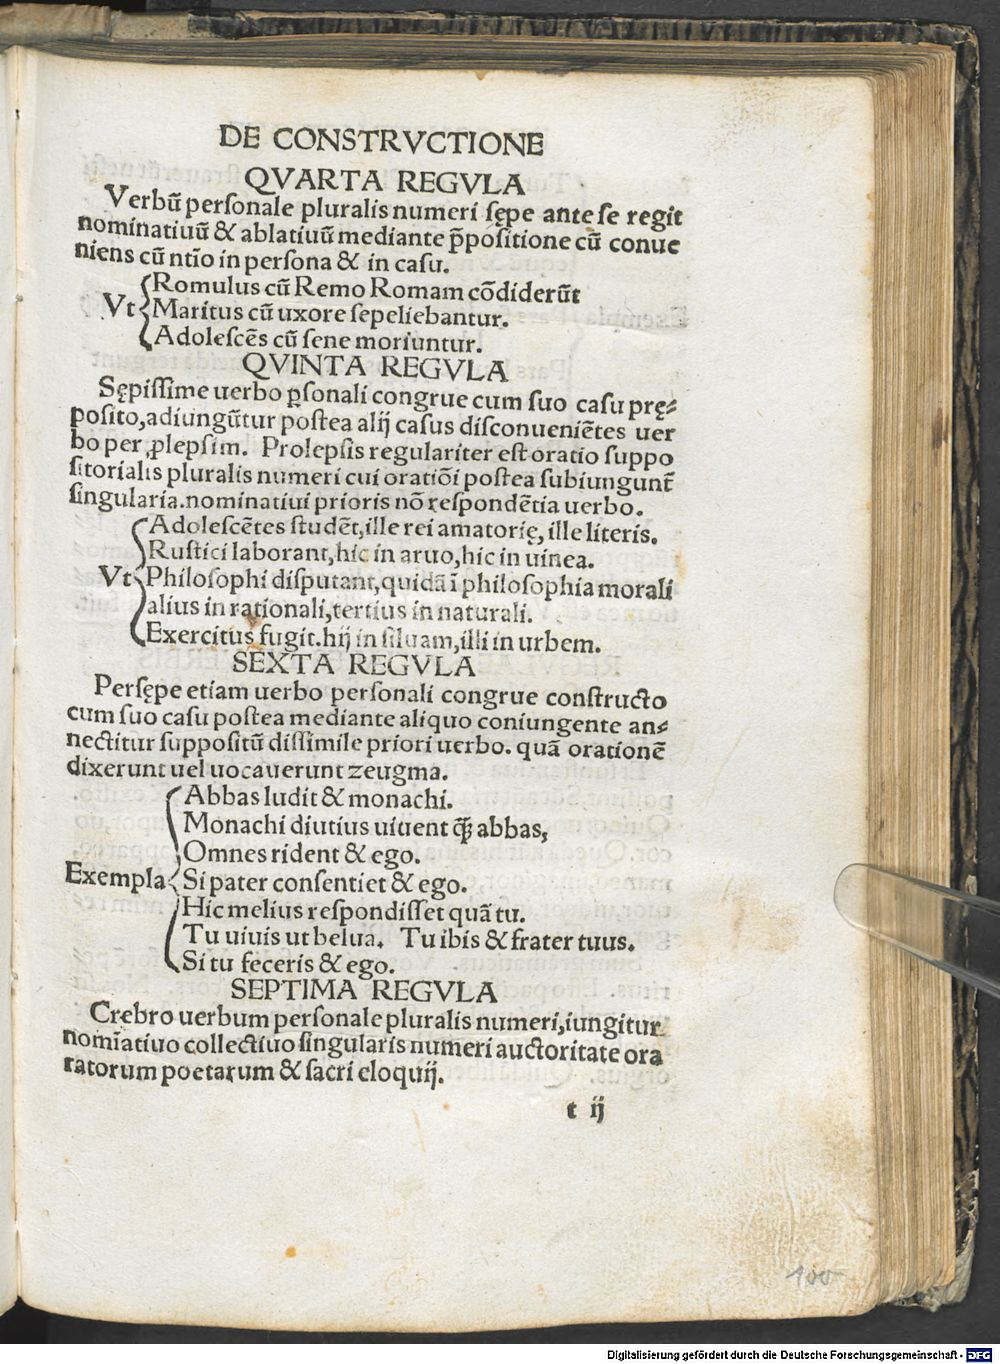 DE CONSTRVCTIONE
QVARTA REGVLA
Verbū personale pluralis numeri sępe ante se regit
nominatiuū & ablatiuū mediante p̄positione cū conue
niens cū ntīo in persona & in casu.
Romulus cū Remo Romam cōdiderūt
Vt Maritus cū uxore sepeliebantur.
Adolescēs cū sene moriuntur.
QVINTA REGVLA
Sępissime uerbo ꝑsonali congrue cum suo casu prę⸗
posito,adiungūtur postea alij casus disconueniētes uer
bo per ꝓlepsim. Prolepsis regulariter est oratio suppo
sitorialis pluralis numeri cui oratiōi postea subiungunt̄
singularia.nominatiui prioris nō respondētia uerbo.
Adolescētes studēt,ille rei amatorię, ille literis.
Rustici laborant,hic in aruo,hic in uinea.
Vt Philosophi disputant,quidā ī philosophia morali
alius in rationali,tertius in naturali.
Exercitus fugit.hij in siluam,illi in urbem.
SEXTA REGVLA
Persępe etiam uerbo personali congrue constructo
cum suo casu postea mediante aliquo coniungente an⸗
nectitur suppositū dissimile priori uerbo. quā orationē
dixerunt uel uocauerunt zeugma.
Abbas ludit & monachi.
Monachi diutius uiuent q̄ȝ abbas,
Omnes rident & ego.
Exempla Si pater consentiet & ego.
Hic melius respondisset quā tu.
Tu uiuis ut belua. Tu ibis & frater tuus.
Si tu feceris & ego.
SEPTIMA REGVLA
Crebro uerbum personale pluralis numeri,iungitur
nomīatiuo collectiuo singularis numeri auctoritate ora
ratorum poetarum & sacri eloquij.
t ij
100
Digitalisierung gefördert durch die Deutsche Forschungsgemeinschaft - DFG